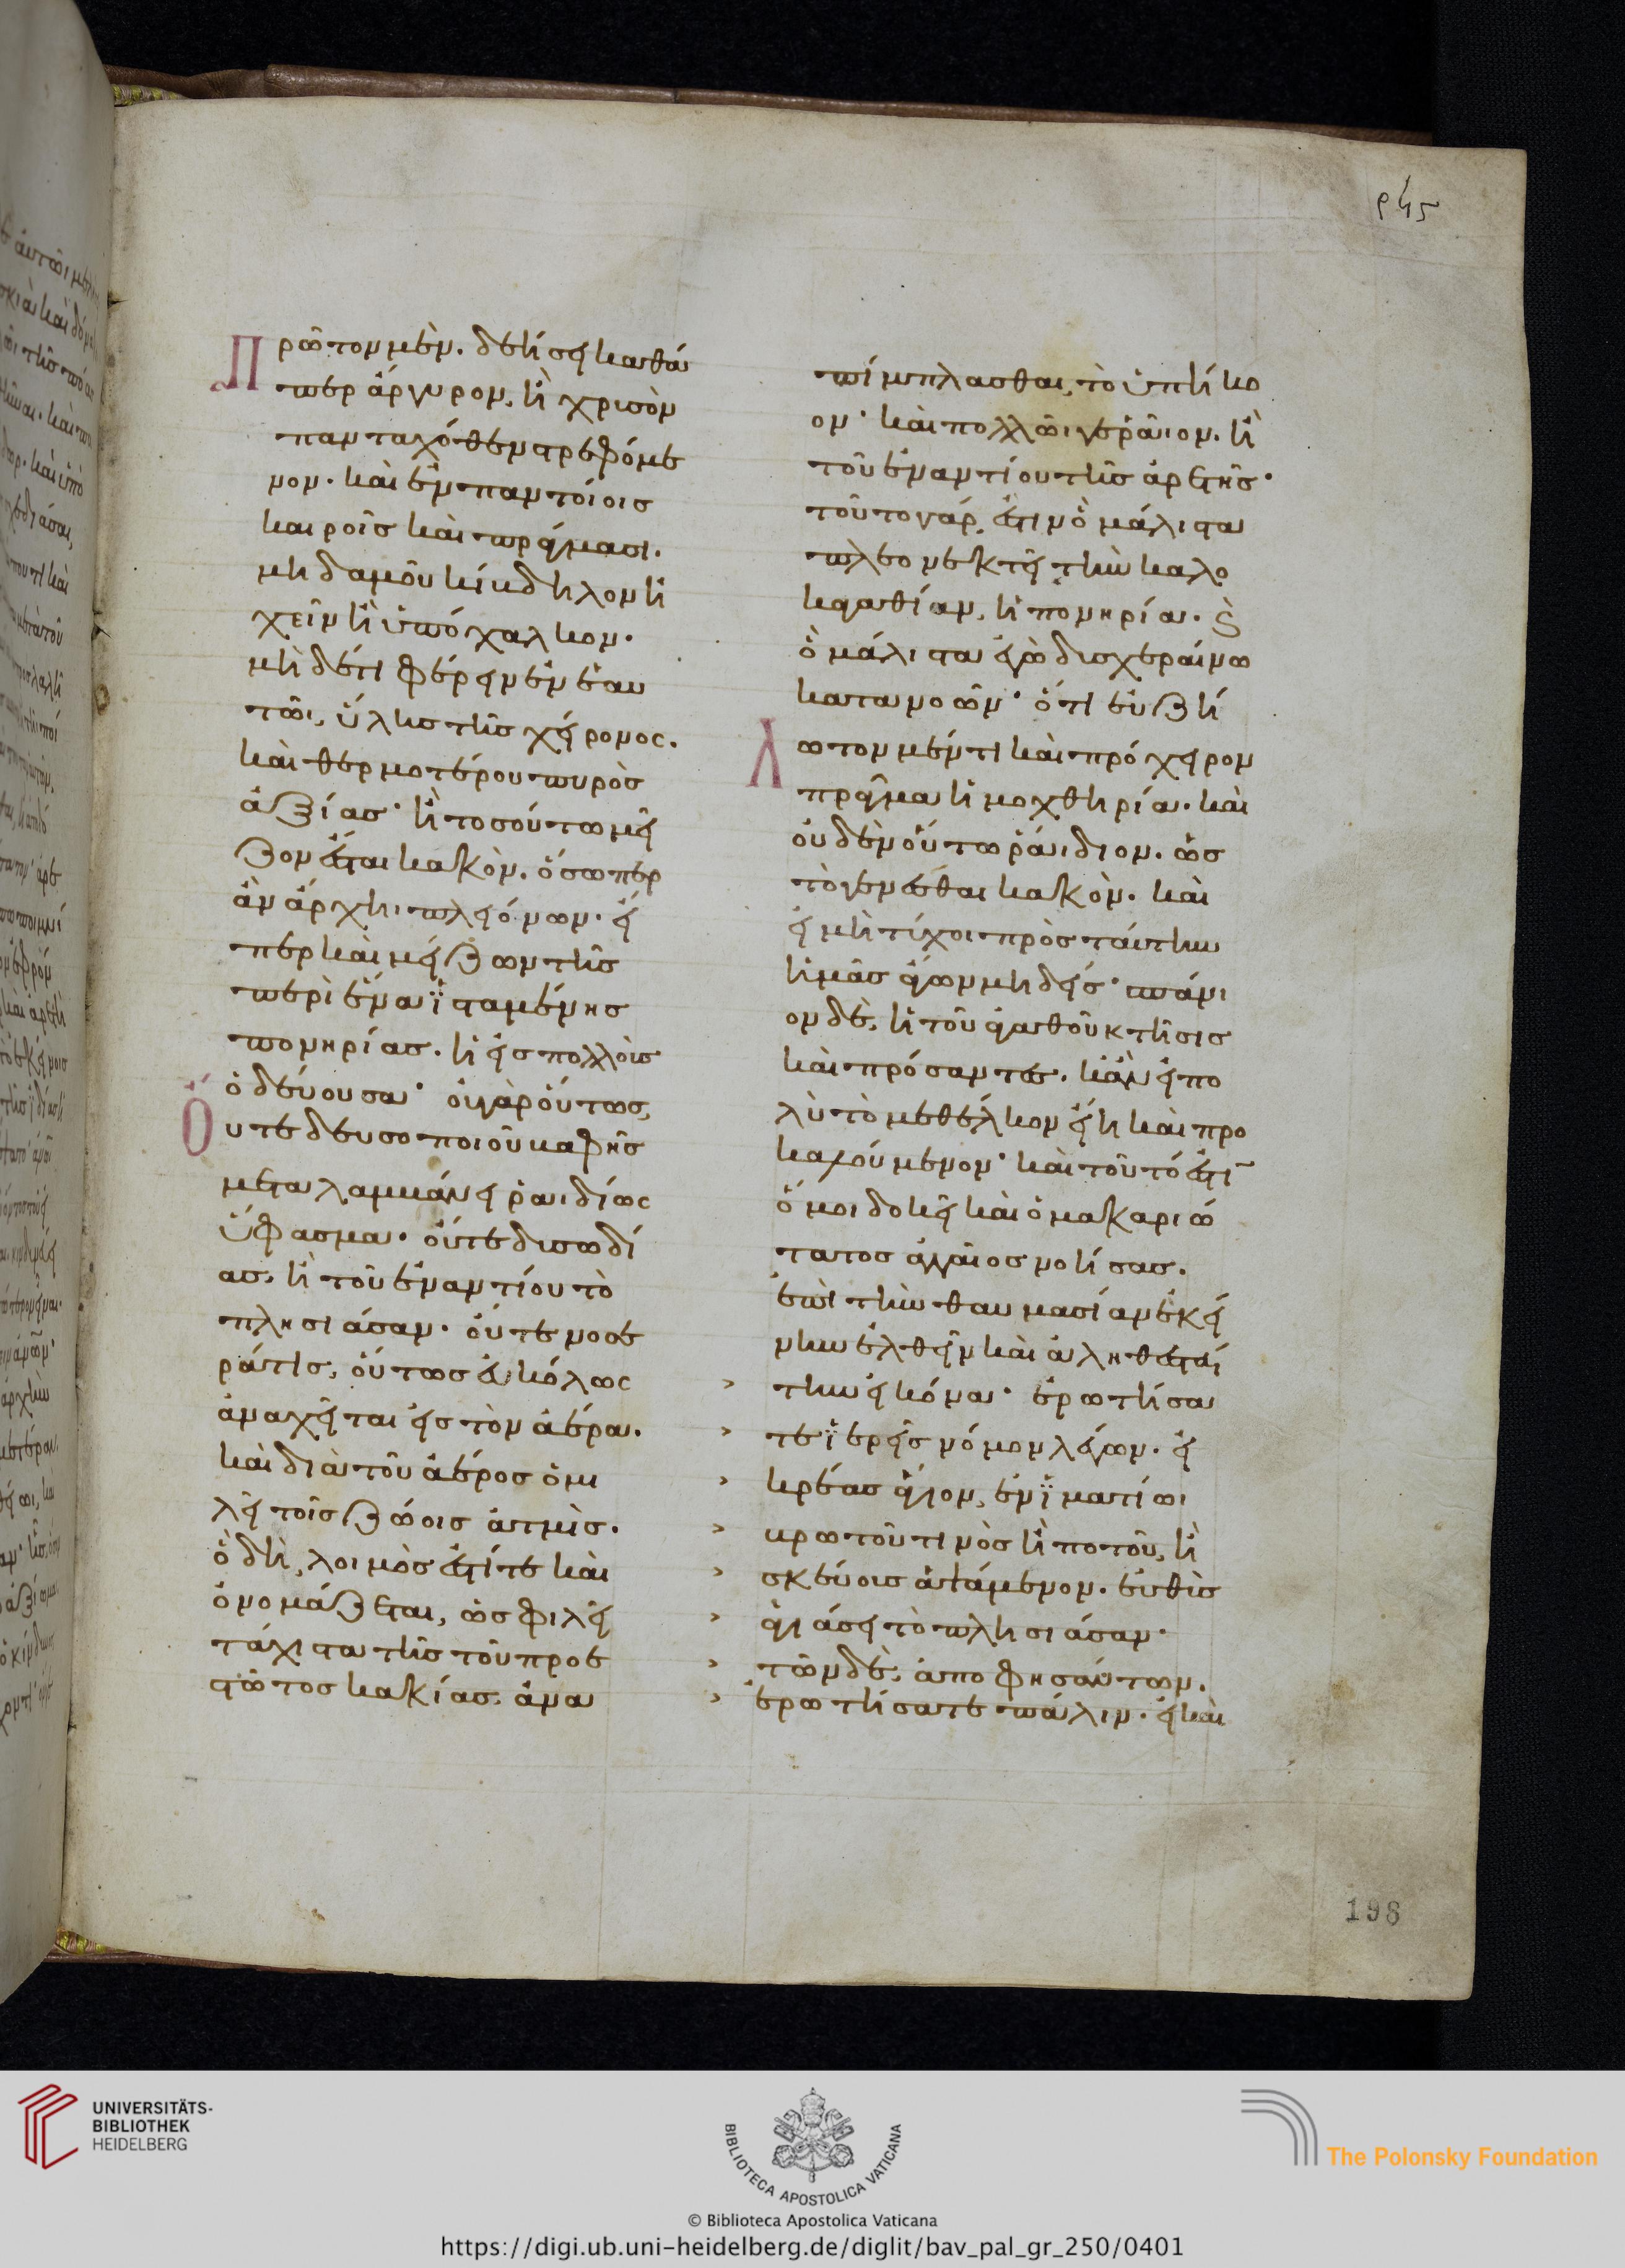 ρϟϛ
Πρῶτον μὲν. δεήσει καθά
περ ἄργυρον, ἢ χρυσὸν
πανταχόθεν στρεφόμε
νον. καὶ ἐν παντοίοις
καιροῖς καὶ πράγμασι.
μηδαμοῦ κίβδηλον ἠ
χεῖν ἢ ὑπόχαλκον.
μὴ δέτι φέρειν ἐν ἑαυ
τῶι, ὕλης τῆς χείρονος.
καὶ θερμοτέρου πυρὸς
ἀξίας· ἢ τοσούτω μεῖ
ζον ἔσται κακὸν. ὅσωπερ
ἂν ἄρχηι πλειόνων. εἴ
περ καὶ μείζων τῆς
περὶ ἕνα ἱσταμένης
πονηρίας. ἡ εἰς πολλοὺς
ὁδεύουσα· οὐ γὰρ οὕτως,
Ὄυτε δευσοποιοῦ βαφῆς
μεταλαμβάνει ῥαιδίως
ὕφασμα. οὔτε δυσωδί
ας, ἢ τοῦ ἐναντίου τὸ
πλησιάσαν. οὔτε νοσε
ρά τις, οὕτως εὐκόλως
ἀναχεῖται εἰς τὸν ἀέρα.
καὶ διὰ τοῦ ἀέρος ὁμι
λεῖ τοῖς ζώοις ἀτμὶς.
ὃ δὴ, λοιμὸς ἐστί τε καὶ
ὀνομάζεται, ὡς φιλεῖ
τάχιστα τῆς τοῦ προε
στῶτος κακίας, ἀνα
πίμπλασθαι, τὸ ὑπήκο
ον· καὶ πολλῶι γε ῥᾶιον. ἢ
τοῦ ἐναντίου τῆς ἀρετῆς·
τοῦτο γάρ ἐστιν ὃ μάλιστα
πλεονεκτεῖ τὴν καλο
καγαθίαν, ἡ πονηρία. ϗ
ὃ μάλιστα ἐγὼ δυσχεραίνω
κατανοῶν· ὅτι εὐζή
λωτον μέν τι καὶ πρόχειρον
πρᾶγμα ἡ μοχθηρία. καὶ
οὐδὲν οὕτω ῥάιδιον. ὡς
τὸ γενέσθαι κακὸν. καὶ
εἰ μὴ τύχοι πρὸς ταύτην
ἡμᾶς ἄγων μηδείς· σπάνι
ον δὲ, ἡ τοῦ ἀγαθοῦ κτῆσις
καὶ πρόσαντες. κἂν εἰ πο
λὺ τὸ μεθέλκον εἴη καὶ προ
καλούμενον· καὶ τοῦτό ἐστι
ὅ μοι δοκεῖ καὶ ὁ μακαριώ
τατος ἀγγαῖος νοήσας.
ἐπὶ τὴν θαυμασίαν ἐκεί
νην ἐλθεῖν καὶ ἀληθεστά
> την εἰκόνα· ἐρωτήσα
> τε ἱερεῖς νόμον λέγων. εἰ
> κρέας ἅγιον, ἐν ἱματίωι
> βρωτοῦ τινὸς ἢ ποτοῦ, ἢ
> σκεύοις ἁψάμενον. εὐθὺς
> ἁγιάσει τὸ πλησιάσαν·
> τῶν δὲ, ἀποφησάντων.
> ἐρωτήσατε πάλιν. εἰ καὶ
198
UNIVERSITÄTS-
BIBLIOTHEK
HEIDELBERG
BIBLIOTECA APOSTOLICA VATICANA
The Polonsky Foundation
© Biblioteca Apostolica Vaticana
https://digi.ub.uni-heidelberg.de/diglit/bav_pal_gr_250/0401